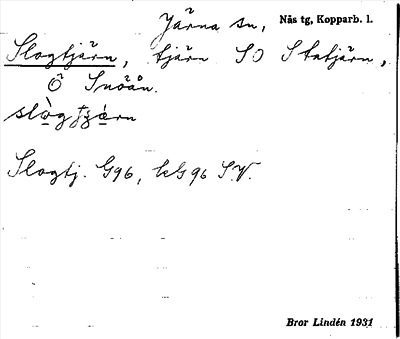 Järna sn, Nås tg, Kopparb. l.
Slogtjärn, tjärn SO Stutjärn,
Ö Snöån.
slògtjæ̀rn
Slogtj. G96, kG96 S.V.
Bror Lindén 1931